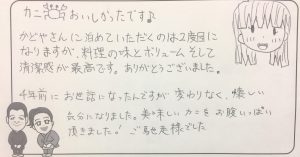 カニ おいしかったです♪
かどやさんに泊めていただくのは2度目に
なりますが、料理の味とボリュームそして
清潔感が最高です。ありがとうございました。
4年前にお世話になったんですが変わりなく、懐しい
気分になりました。美味しいカニをお腹いっぱい
頂きました! ご馳走様でした